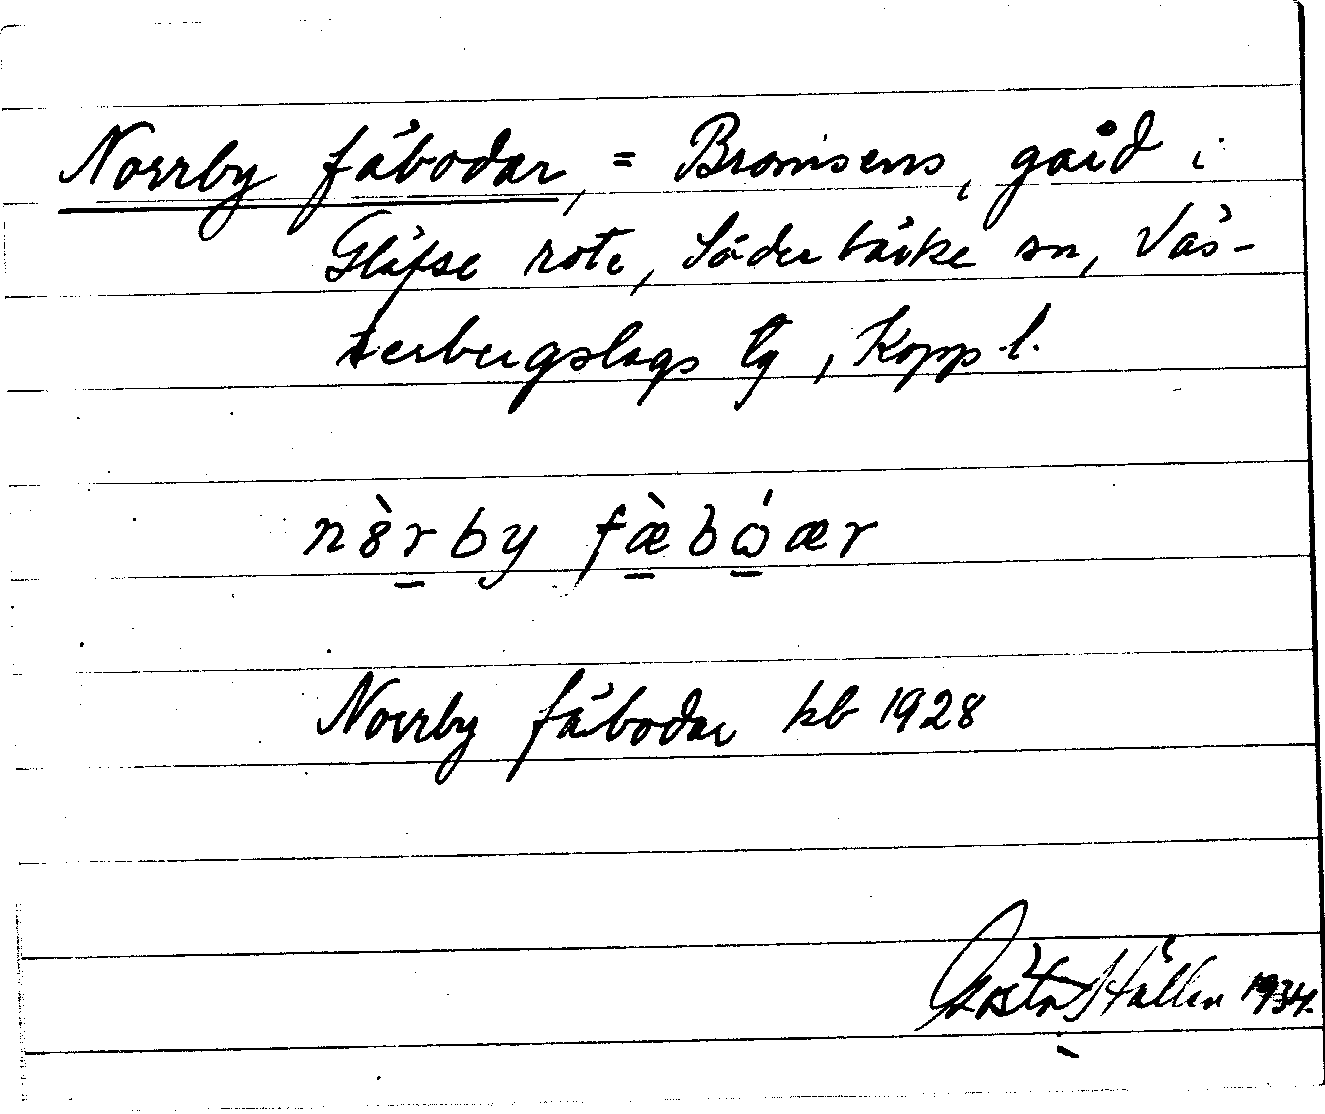 Norrby fäbodar, = Bromsens, gård i
Gläfse rote, Söderbärke sn, Väs-
terbergslags tg, Kopp. l.
nȯ̀rby fæ̀bώær
Norrby fäbodar kb 1928
Gösta Hällen 1934.